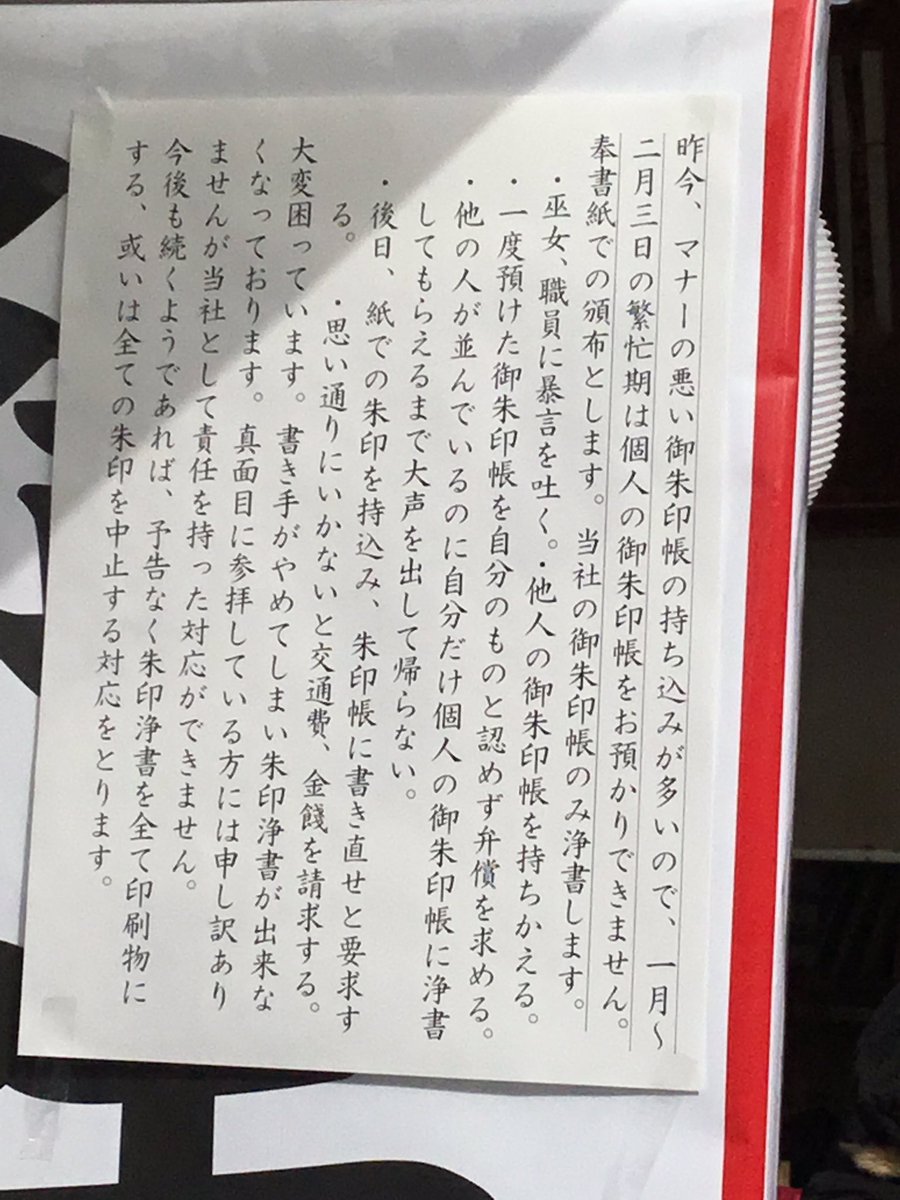 昨今、マナーの悪い御朱印帳の持ち込みが多いので、一月～
二月三日の繁忙期は個人の御朱印帳をお預かりできません。
奉書紙での頒布とします。当社の御朱印帳のみ浄書します。
・巫女、職員に暴言を吐く。・他人の御朱印帳を持ちかえる。
・一度預けた御朱印帳を自分のものと認めず弁償を求める。
・他の人が並んでいるのに自分だけ個人の御朱印帳に浄書
してもらえるまで大声を出して帰らない。
・後日、紙での朱印を持込み、朱印帳に書き直せと要求す
る。・思い通りにいかないと交通費、金餞を請求する。
大変困っています。書き手がやめてしまい朱印浄書が出来な
くなっております。真面目に参拝している方には申し訳あり
ませんが当社として責任を持った対応ができません。
今後も続くようであれば、予告なく朱印浄書を全て印刷物に
する、或いは全ての朱印を中止する対応をとります。